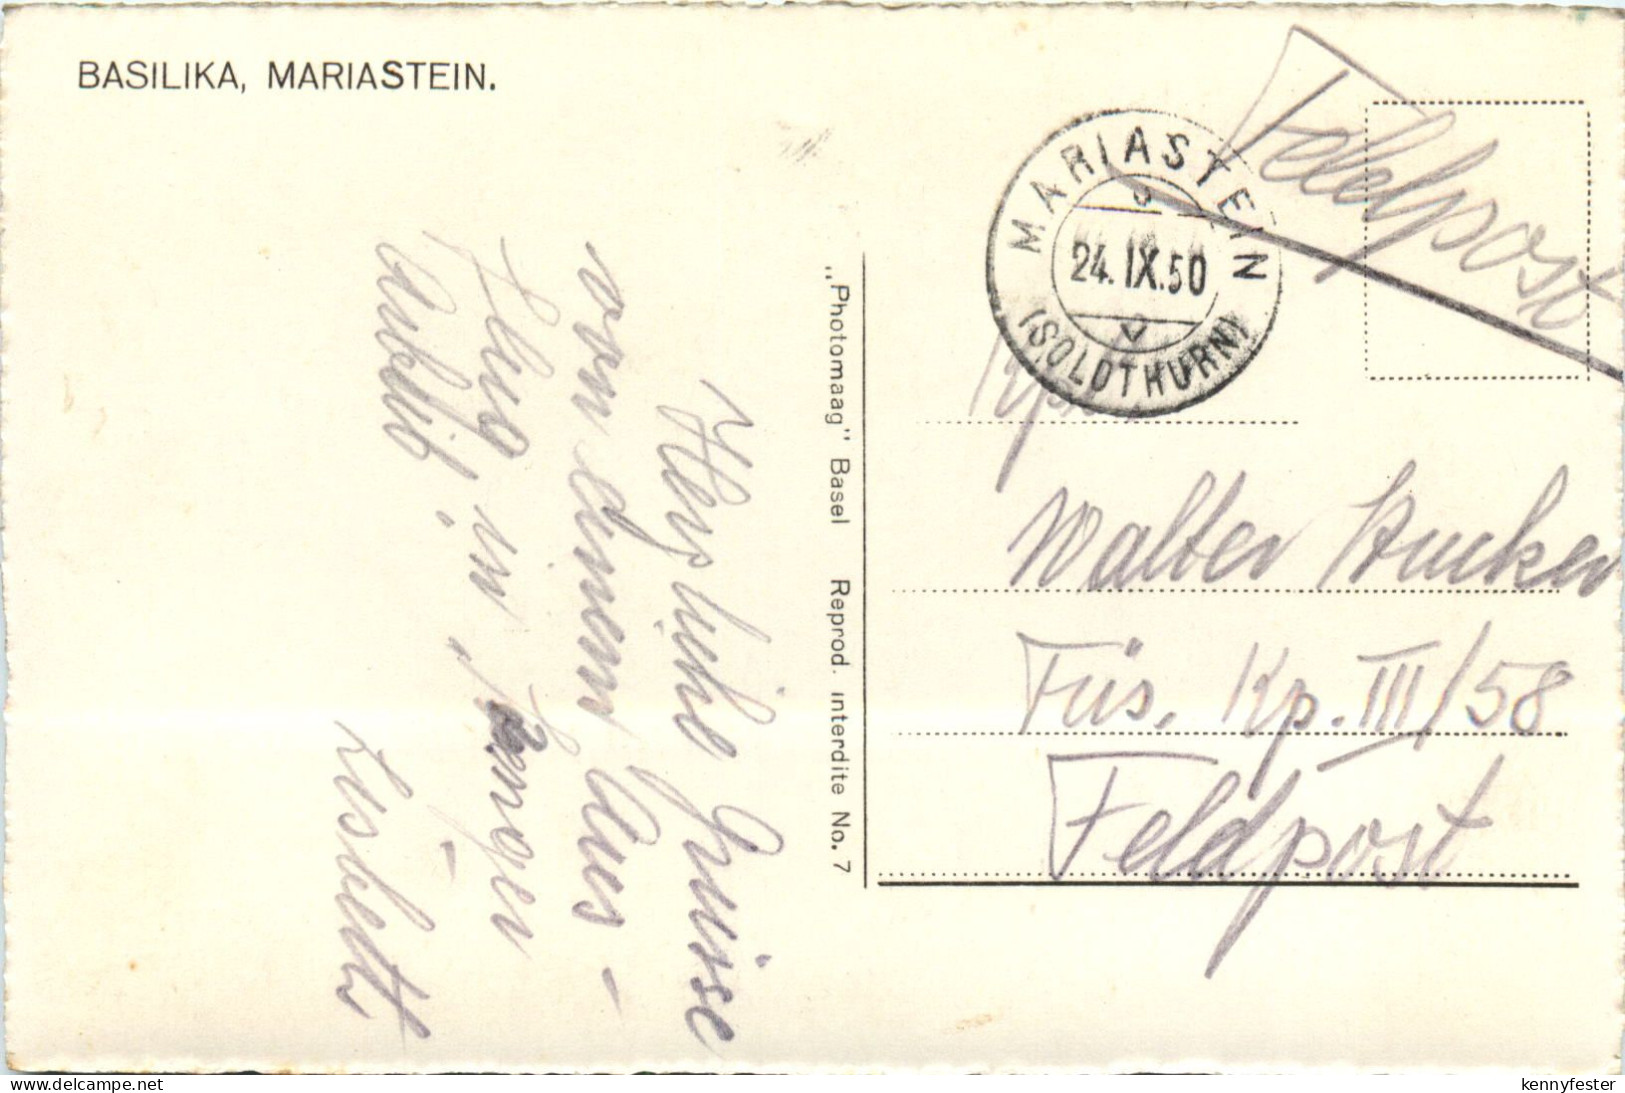 BASILIKA, MARIASTEIN.
Feldpost
MARIASTEIN
24. IX. 50
(SOLOTHURN)
Walter Hucker
Füs. Kp. III/58
Feldpost
"Photomaag" Basel Reprod. interdite No. 7
Herzliche Grüsse
von einem Aus-
flug in
Lisbeth
www.delcampe.net
kennyfester